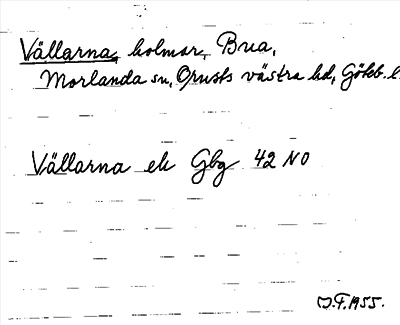 Vällarna, holmar, Bua,
Morlanda sn, Orusts västra hd, Göteb. l
Vällarna ek Gbg 42 NO
J.F. 1955.